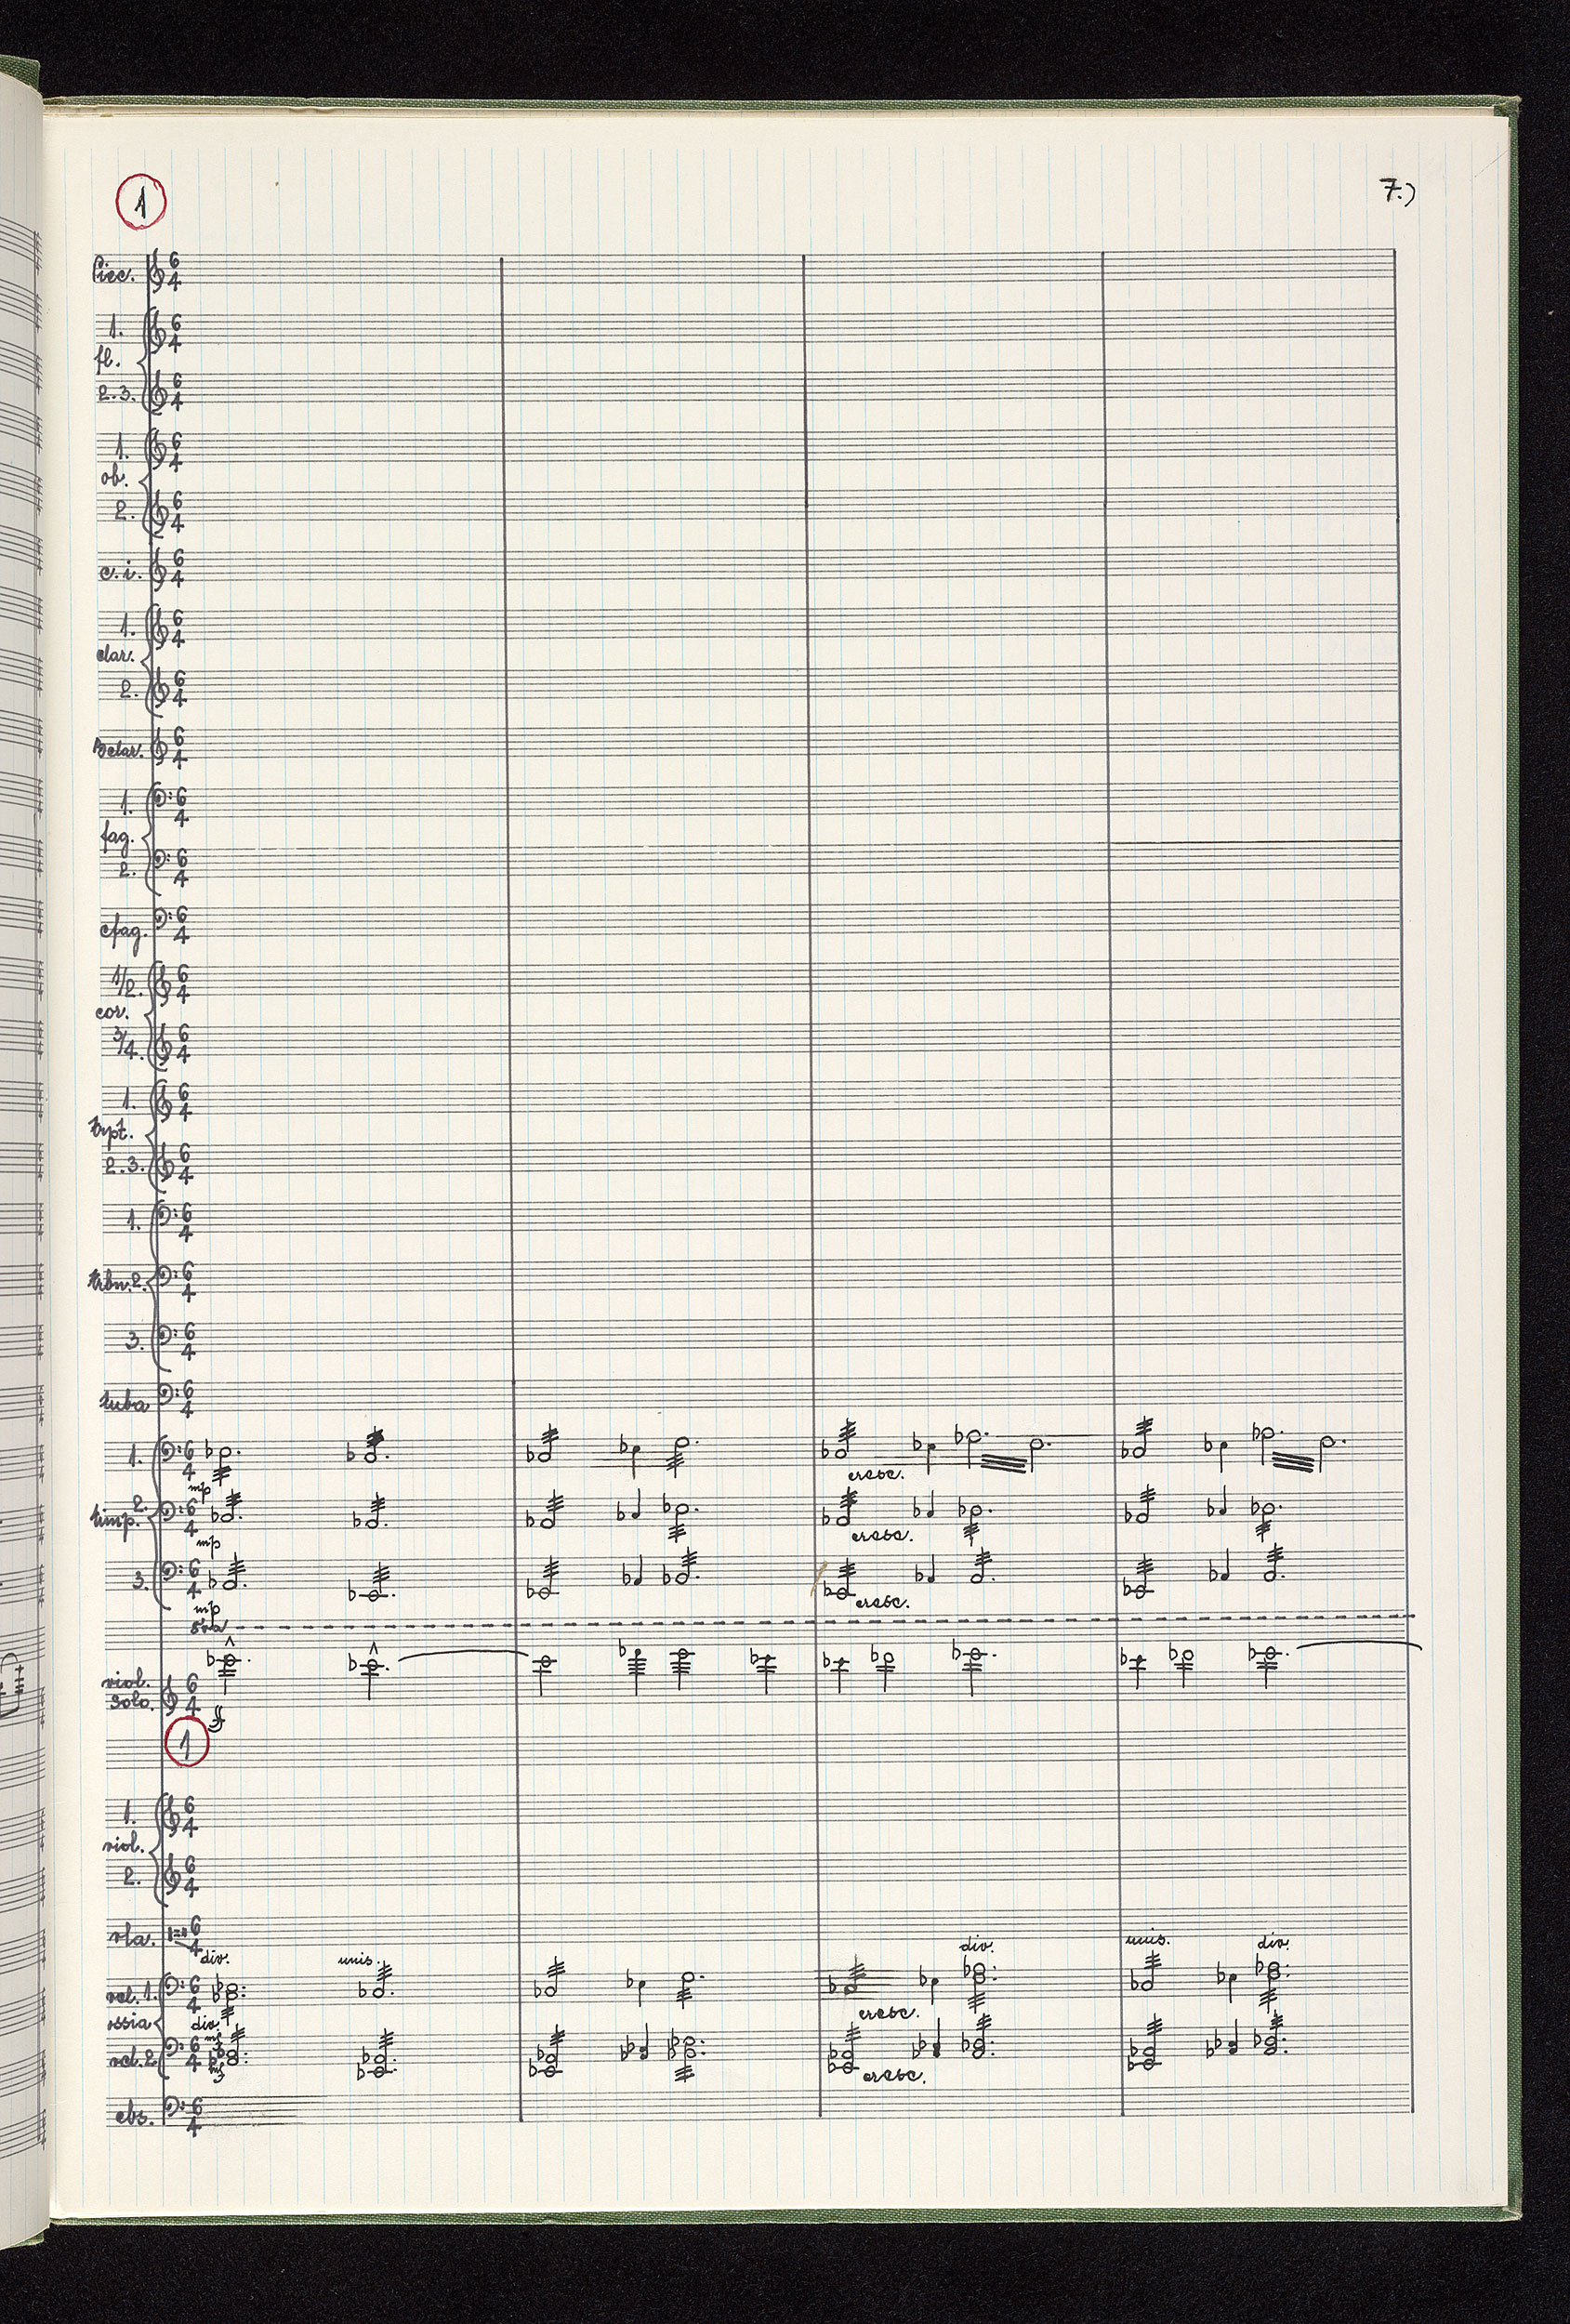 1
7.)
Picc. 6 4
1. 6 4
fl.
2.3. 6 4
1. 6 4
ob.
2. 6 4
c.i. 6 4
1. 6 4
clar.
2. 6 4
Bclar. 6 4
1. 6 4
fag.
2. 6 4
cfag. 6 4
1/2. 6 4
cor.
3/4. 6 4
1. 6 4
trpt.
2.3. 6 4
1. 6 4
trbn. 2. 6 4
3. 6 4
tuba 6 4
1. 6 4
mp cresc.
2. 6 4
timp.
mp cresc.
3. 6 4
mp cresc.
8va
viol. solo 6 4
ff
1
1. 6 4
viol.
2. 6 4
vla. 6 4
div. unis. div. unis. div.
vcl. 1. 6 4
cresc.
ossia div.
mf
vcl. 2. 6 4
mf cresc.
cbs. 6 4